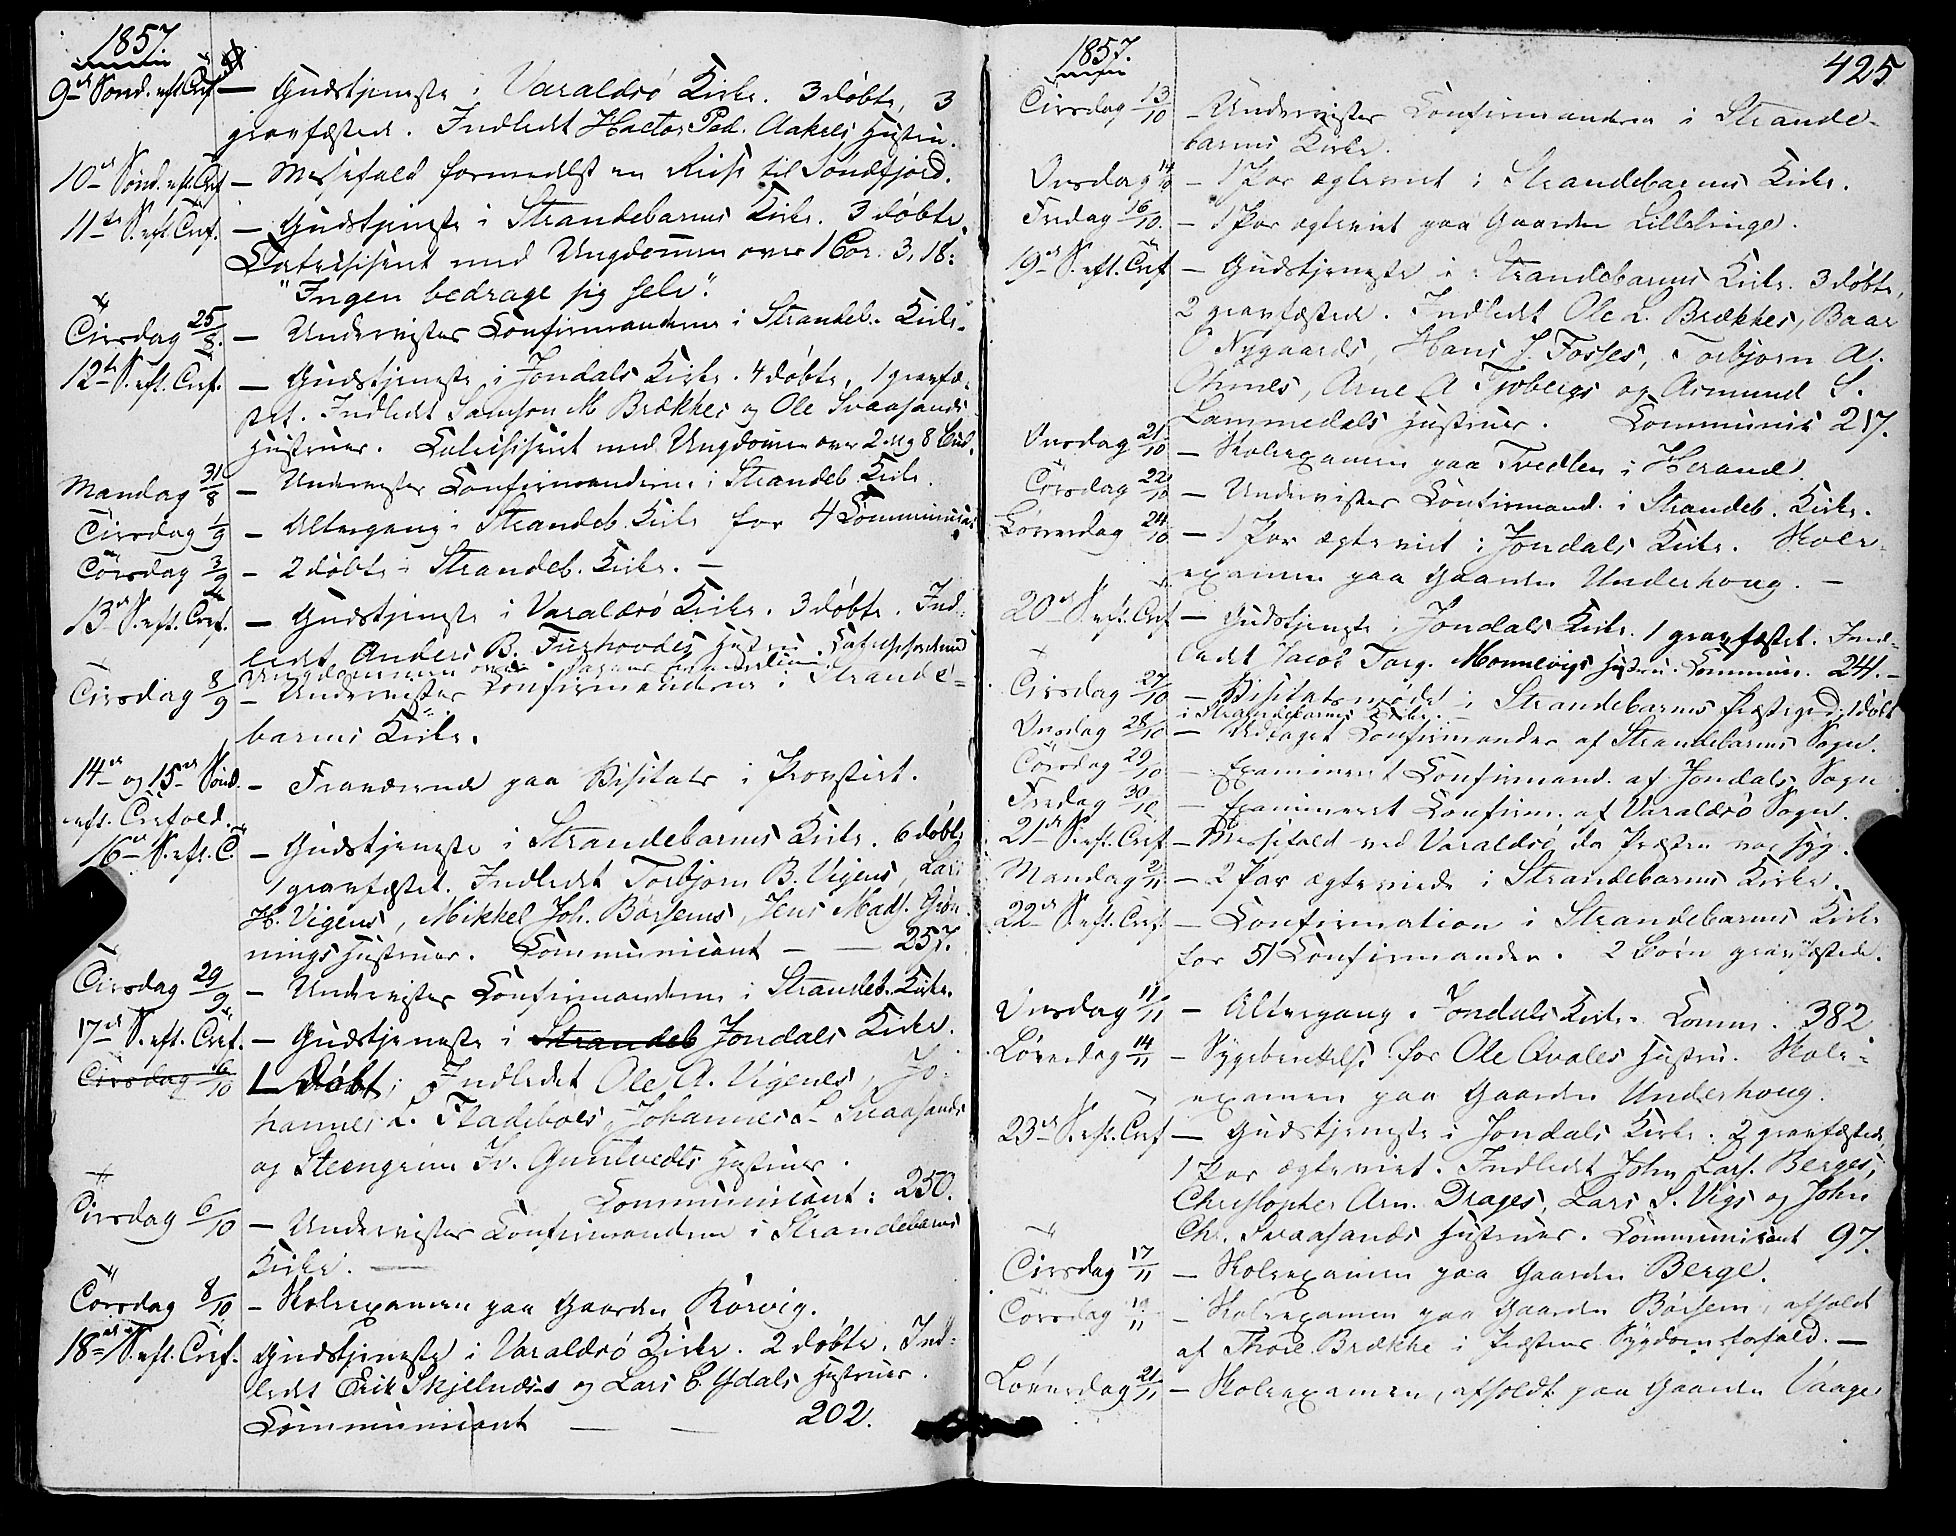 1857.
9de Sønd. eft. Tref. — Gudstjeneste i Varaldsø Kirke. 3 døbte, 3
gravfæstede. Indledt Hactor Ped. Aakres Hustru.
10de Sønd. eft. Tref. — Messefald formedelst en Reise til Søndfjord.
11te S. eft. Tref. — Gudstjeneste i Strandebarms Kirke. 3 døbte.
Catechiseret med Ungdommen over 1 Cor. 3, 18:
"Ingen bedrage sig selv".
Tirsdag 25/8. — Underviste Confirmanderne i Strandeb. Kirke.
12te S. eft. Tref. — Gudstjeneste i Jondals Kirke. 4 døbte, 1 gravfæ-
stet. Indledt Samson M Brækkes og Ole Svaasands
Hustruer. Catechiseret med Ungdommen over 2 og 8 Bud.
Mandag 31/8 — Underviste Confirmanderne i Strandeb. Kirke.
Tirsdag 1/9 — Altergang i Strandeb. Kirke for 4 Communicant.
Torsdag 3/9 — 2 døbte i Strandeb. Kirke. —
13de S. eft. Tref. — Gudstjeneste i Varaldsø Kirke. 3 døbte. Ind-
ledt Anders B. Tueshovdes Hustru. Catechiserede
Ungdommen over
Tirsdag 8/9 — Underviste Confirmanderne i Strande-
barms Kirke.
14de og 15de Sønd. eft. Trefold. — Fraværende paa Visitats i Provstiet.
16de S. eft. T. — Gudstjeneste i Strandebarms Kirke. 6 døbte
1 gravfæstet. Indledt Torbjørn B. Vigens, Lars
H. Vigens, Mikkel Joh. Børsems, Jens Mads. Grøn-
nings Hustruer. Communicant — — 257.
Tirsdag 29/9 — Underviste Confirmanderne i Strandeb. Kirke.
17de S. eft. Tref. — Gudstjeneste i Strandeb Jondals Kirke.
Tirsdag 6/10 1 døbt; Indledet Ole A. Vigenes, Jo-
hannes L. Fladebøes, Johannes L. Svaasands
og Steengrim Iv. Guntvedts Hustruer.
Communicant: 250.
Tirsdag 6/10 — Underviste Confirmanderne i Strandebarms
Kirke. —
Torsdag 8/10 — Skoleexamen paa Gaarden Rørvig.
18de S. eft. Tref. Gudstjeneste i Varaldsø Kirke. 2 døbte. Ind-
ledt Erik Skjelnæs og Lars E. Ydals Hustruer.
Communicant — — 202.
1857.
425
Tirsdag 13/10 — Underviste Confirmanderne i Strande-
barms Kirke.
Onsdag 14/10 — 1 Par ægteviet i Strandebarms Kirke.
Fredag 16/10. — 1 Par ægteviet paa Gaarden Lillelinge.
19de S. eft. Tref. — Gudstjeneste i Strandebarms Kirke. 3 døbte,
2 gravfæstede. Indledt Ole L. Brækkes, Baar
O Nygaards, Hans J. Fosses, Torbjørn A.
Omnes, Arne A Tjobergs og Asmund S.
Lammedals Hustruer. Communic 217.
Onsdag 21/10 — Skoleexamen paa Tvedten i Herand.
Torsdag 22/10 — Underviste Confirmand. i Strandeb. Kirke.
Løverdag 24/10 — 1 Par ægteviet i Jondals Kirke. Skole-
examen paa Gaarden Underhoug. —
20de S. eft. Tref — Gudstjeneste i Jondals Kirke. 1 gravfæstet. Ind-
ledet Jacob Torg. Monnevigs Hustru. Commun. 244. —
Tirsdag 27/10 — Visitatsmøde i Strandebarms Præstegd; 1 døbt
i Strandebarms Kirke. —
Onsdag 28/10 — Udtaget Confirmander af Strandebarms Sogn.
Torsdag 29/10 — Examineret Confirmand. af Jondals Sogn
Fredag 30/10 — Examineret Confirm. af Varaldsø Sogn.
21de S. eft. Tref — Messefald ved Varaldsø, da Præsten var syg.
Mandag 2/11 — 2 Par ægteviede i Strandebarms Kirke.
22de S. eft. Tref. — Confirmation i Strandebarms Kirke
for 51 Confirmander. 2 Børn gravfæstede.
Onsdag 11/11 — Altergang i Jondals Kirke. Comm. 382
Løverdag 14/11 — Sygeberettelse for Ole Qvales Hustru. Skole-
examen paa Gaarden Underhoug.
23de S. eft. Tref — Gudstjeneste i Jondals Kirke. 2 gravfæstede,
1 Par ægteviet. Indledet John Lars. Berges,
Christopher Arn. Drages, Lars S. Vigs og John
Chr. Svaasands Hustruer. Communicant 97.
Tirsdag 17/11 — Skoleexamen paa Gaarden Berge.
Torsdag 19/11 — Skoleexamen paa Gaarden Børsem, afholdt
af Thore Brække i Præstens Sygdomsforfald. —
Løverdag 21/11 — Skoleexamen, afholdt paa Gaarden Vaage